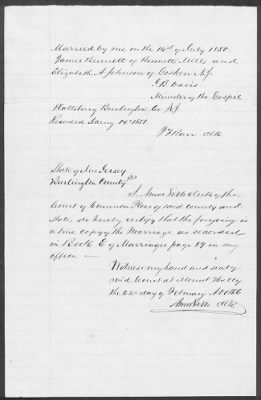 Married by me on the 14th of July 1850.
James Bennett of Bennetts Mills and
Elizabeth A Johnson of N.J.
J. B. Davis
Minister of the Gospel
Burlington Co N.J
Recorded 14th 1851
Clk
State of New Jersey
Burlington County ss
I. Amos clerk of the
Court of Common Pleas of said county and
State, do hereby certify that the foregoing is
a true copy the Marriage as recorded
in Book E of Marriages page 19 in my
office —
Witness my hand and seal of
said Court at Mount Holly
the day of February A D
Amos Clk